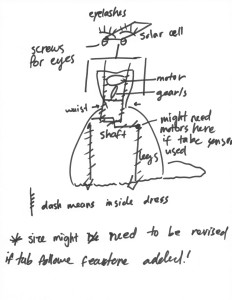 eyelashes
solar cell
screws
for eyes
motor
gears
waist
might need
motors here
if tabe sensor
used
shaft
legs
dash means inside dress
* size might be need to be revised
if tab follow feastone added!